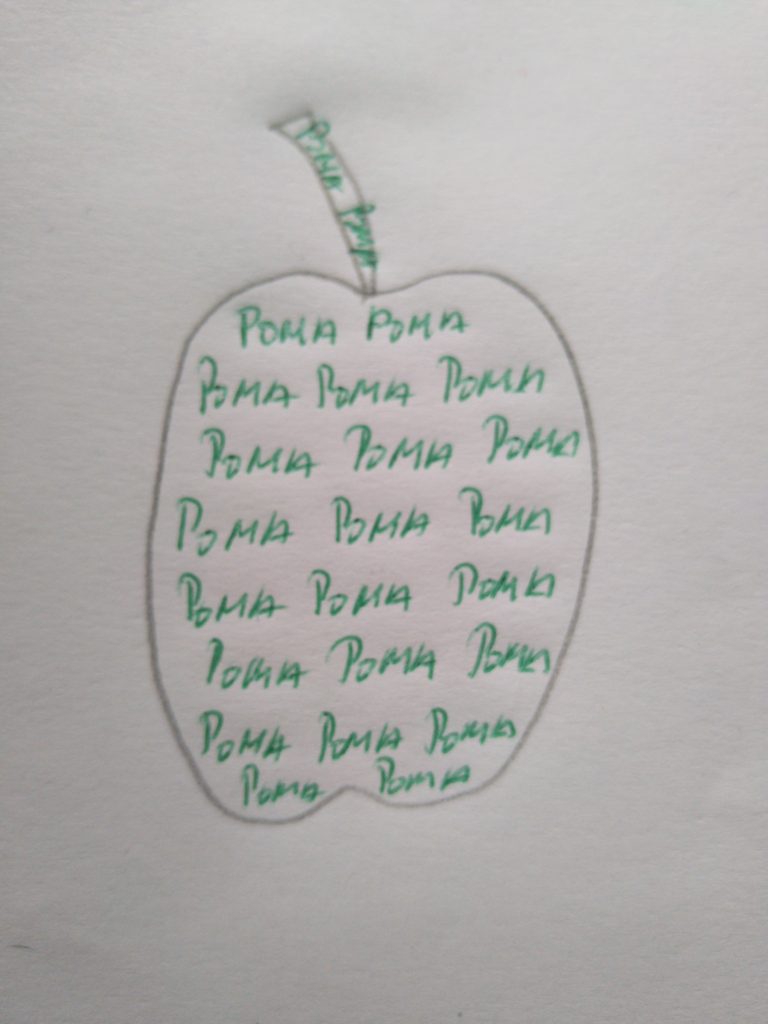 POMA POMA
POMA POMA
POMA POMA POMA
POMA POMA POMA
POMA POMA POMA
POMA POMA POMA
POMA POMA POMA
POMA POMA POMA
POMA POMA